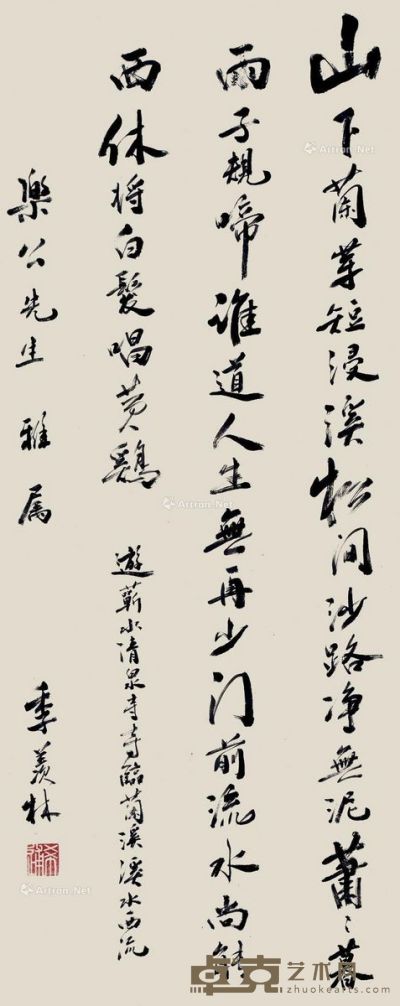 山下蘭芽短浸溪松间沙路净無泥蕭〻暮
雨子規啼誰道人生無再少门前流水尚能
西休将白髮唱黄鷄
遊蘄水清泉寺寺臨蘭溪溪水西流
樂公先生 雅属
季羡林
卓克艺术网
www.zhuokearts.com
Artron.Net